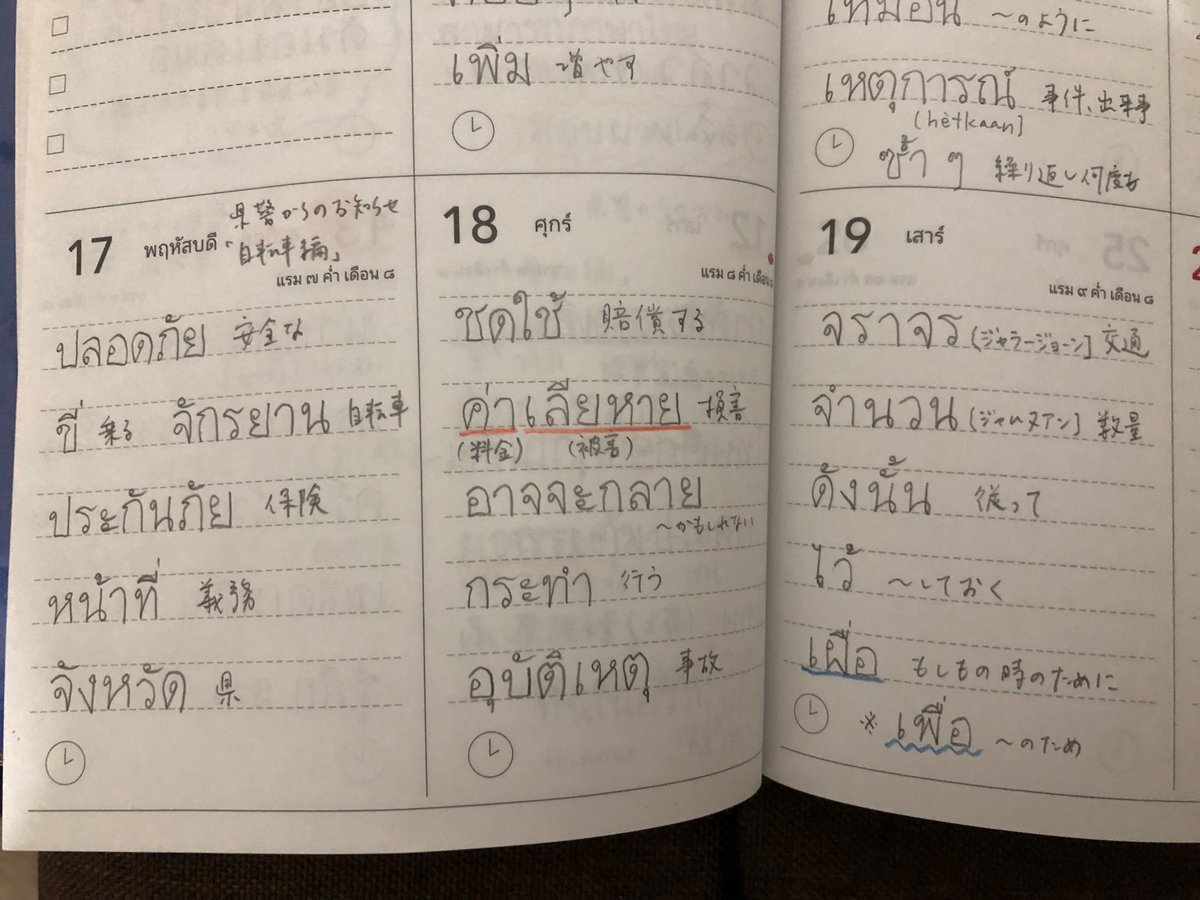 เพิ่ม 増やす
เหมือน ～のように
เหตุการณ์ 事件、出来事
(hètkaan]
ซ้ำ ๆ 繰り返し何度も
17 พฤหัสบดี
県警からのお知らせ
「自転車編」
แรม ๗ ค่ำ เดือน ๘
ปลอดภัย 安全な
ขี่ 乗る จักรยาน 自転車
ประกันภัย 保険
หน้าที่ 義務
จังหวัด 県
18 ศุกร์
แรม ๘ ค่ำ เดือน
ชดใช้ 賠償する
ค่าเสียหาย 損害
(料金) (被害)
อาจจะกลาย
～かもしれない
กระทำ 行う
อุบัติเหตุ 事故
19 เสาร์
แรม ๙ ค่ำ เดือน ๘
จราจร (ジャラージョーン] 交通
จำนวน (ジャムヌアン] 数量
ดังนั้น 従って
ไว้ ～しておく
เผื่อ もしもの時のために
※ เพื่อ ～のため